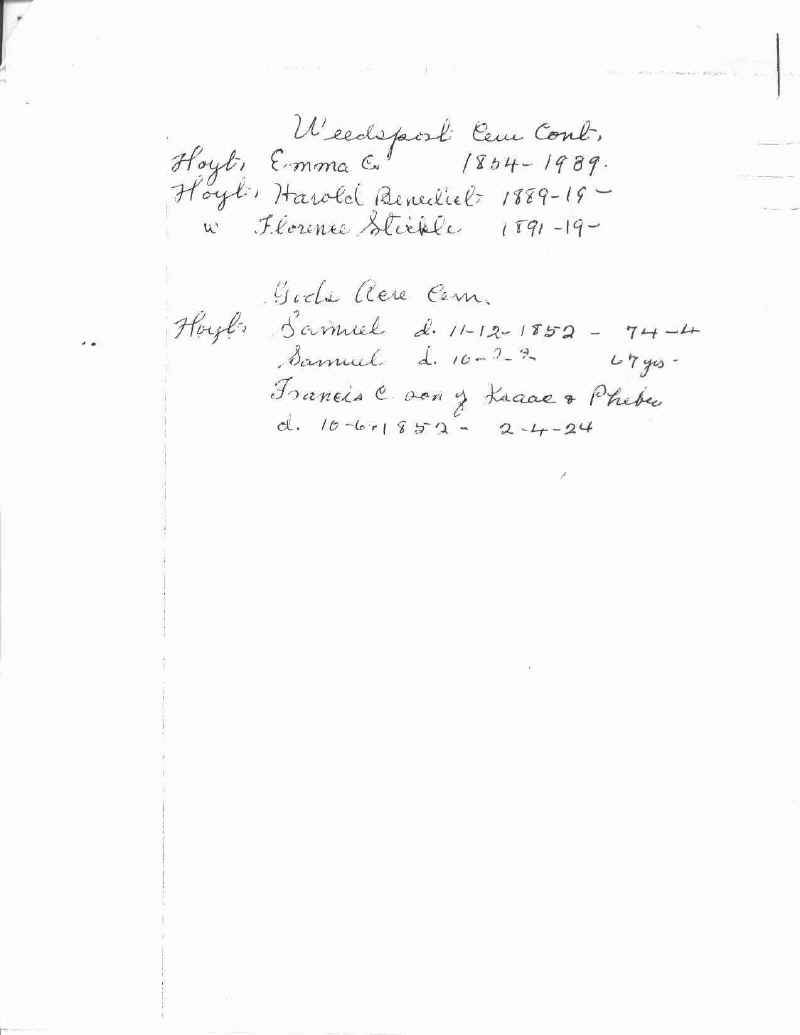 Weedsport Cem Cont,
Hoyt, Emma C. 1854-1939.
Hoyt, Harold Benedict 1889-19-
w Florence Stickle 1891-19-
Gods Acre Cem.
Hoyt, Samuel d. 11-12-1852 - 74-4
Samuel d. 10-?-?- 67 yrs-
Francis C son of Isaac & Phebe
d. 10-6-1852 - 2-4-24